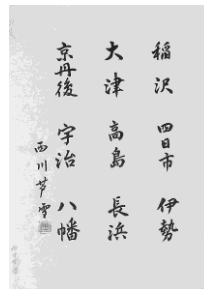 稲沢 四日市 伊勢
大津 高島 長浜
京丹後 宇治 八幡
西川芳雪